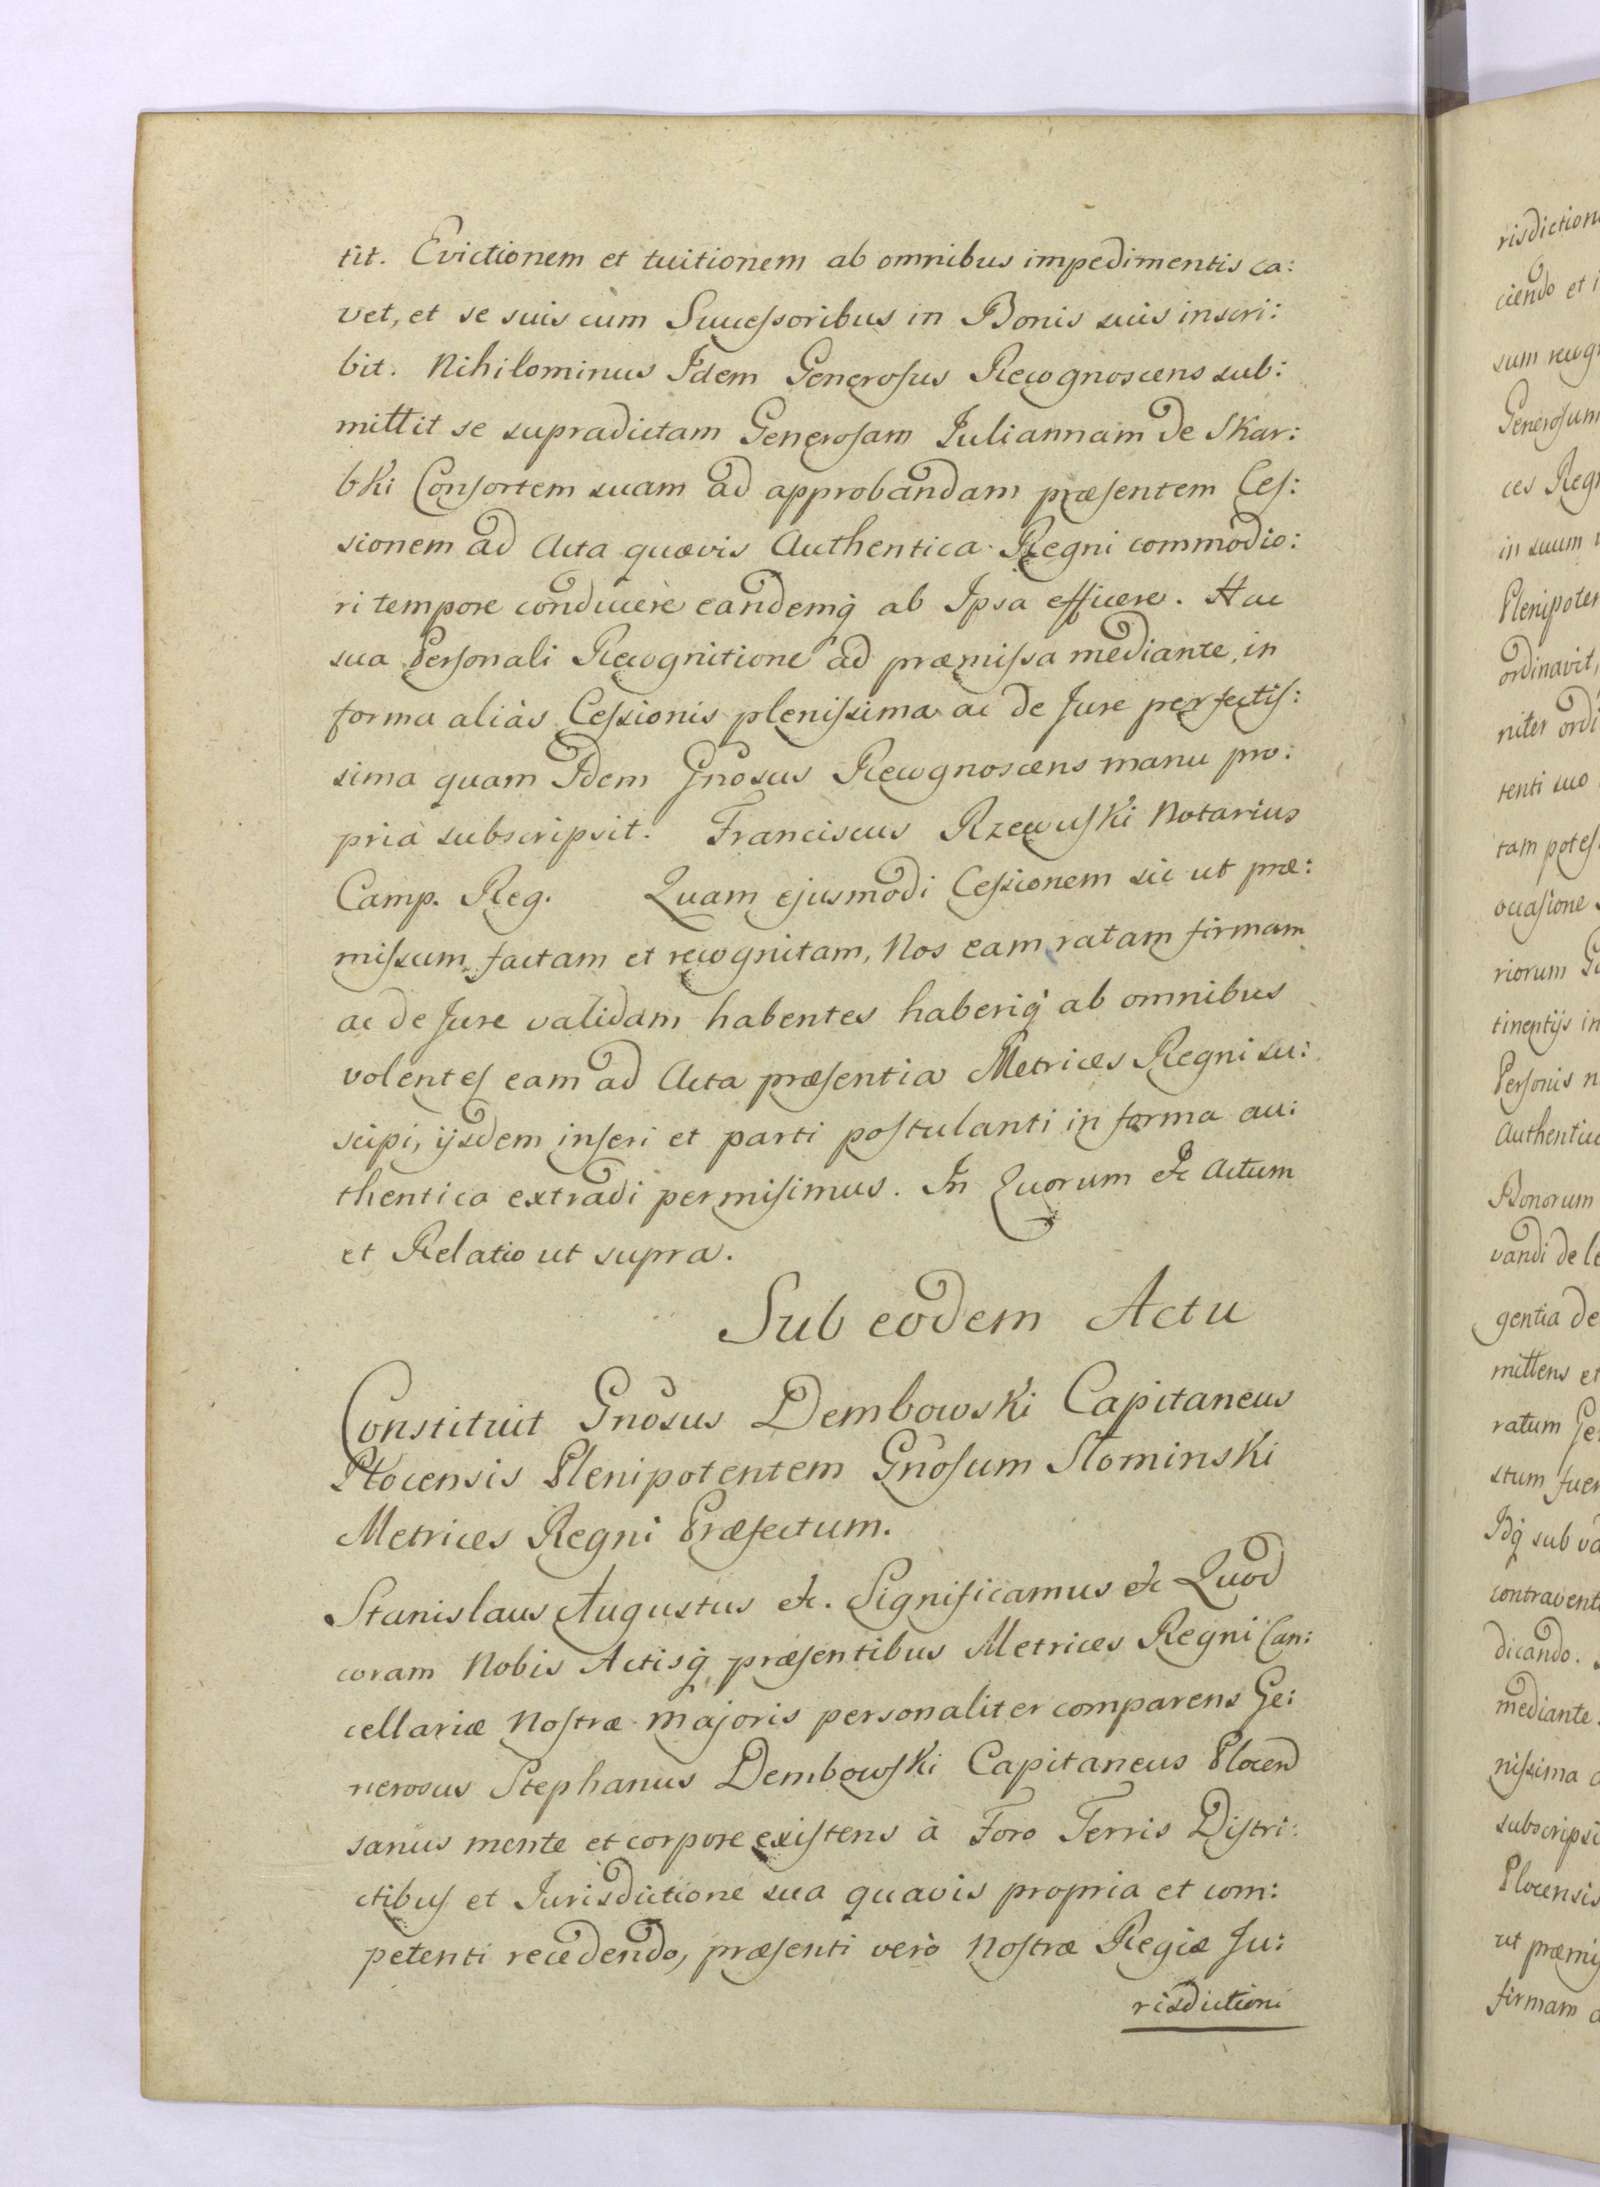 tit. Evictionem et tuitionem ab omnibus impedimentis ca:
vet, et se suis cum Successoribus in Bonis suis inscri:
bit. Nihilominus Idem Generosus Recognoscens sub:
mittit se supradictam Generosam Juliannam de Skar:
bki Consortem suam ad approbandam præsentem Ces:
sionem ad Acta quævis Authentica Regni commodio:
ri tempore conducere eandemq́ ab Ipsa efficere. Hac
sua Personali Recognitione ad præmissa mediante, in
forma aliàs Cessionis plenissima ac de Jure perfectis:
sima quam Idem Gnosus Recognoscens manu pro:
pria subscripsit. Franciscus Rzewuski Notarius
Camp. Reg. Quam ejusmodi Cessionem sic ut præ:
missum factam et recognitam, Nos eam ratam firmam
ac de Jure validam habentes haberiq́ ab omnibus
volentes eam ad Acta præsentia Metrices Regni su:
scipi, ijsdem inseri et parti postulanti in forma au:
thentica extradi permisimus. In Quorum &c Actum
et Relatio ut supra.
Sub eodem Actu
Constituit Gnosus Dembowski Capitaneus
Plocensis Plenipotentem Gnosum Slominski
Metrices Regni Præfectum.
Stanislaus Augustus &c. Significamus &c Quod
coram Nobis Actisq́ præsentibus Metrices Regni Can:
cellariæ Nostræ Majoris personaliter comparens Ge:
nerosus Stephanus Dembowski Capitaneus Plocen
sanus mente et corpore existens à Foro Terris Distri:
ctibus et Jurisdictione sua quavis propria et com:
petenti recedendo, præsenti verò Nostræ Regiæ Ju:
risdictioni
risdictioni
ciendo et i
sum recogn
Generosum
ces Regn
in suum
Plenipoten
ordinavit,
niter ordi
tenti suo
tam potes
occasione
riorum
tinentijs in
Personis n
Authentic
Bonorum
vandi de le
gentia de
mittens et
ratum Ge
stum fuer
Idq́ sub va
contraventi
dicando.
mediante
nissima
subscripsi
Plocensis
ut præmis
firmam a